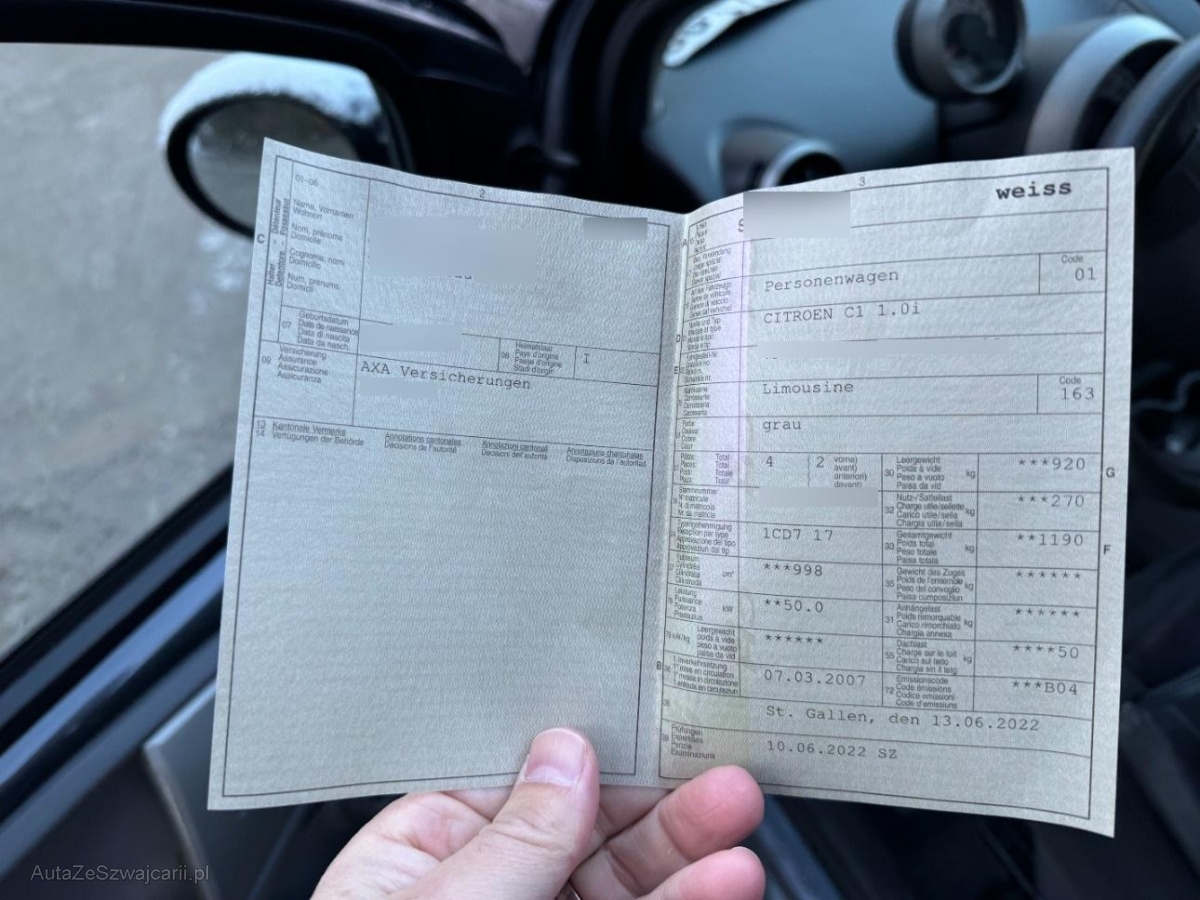 2
01-06
Name, Vornamen
Wohnort
Nom, prénoms
Domicile
Cognome, nomi
Domicilio
Num, prenums
Domicil
C
07
Geburtsdatum
Date de naissance
Data di nascita
Data da nasch.
08
Heimatstaat
Pays d'origine
Paese d'origine
Stadi d'origin
I
09
Versicherung
Assurance
Assicurazione
Assicuranza
AXA Versicherungen
13
14
Kantonale Vermerke
Verfügungen der Behörde
Annotations cantonales
Décisions de l'autorité
Annotazioni cantonali
Decisioni dell'autorità
Annotaziuns chantunalas
Disposiziuns da l'autoritad
3
weiss
A
Personenwagen
Code
01
D
CITROEN C1 1.0i
E
Limousine
Code
163
grau
4
2
vorne)
avant)
anteriori)
davant)
30
Leergewicht
Poids à vide
Peso a vuoto
Paisa da vid
kg
***920
G
32
Nutz-/Sattellast
Charge utile/sellette
Carico utile/sella
Chargia utila/sella
kg
***270
1CD7 17
33
Gesamtgewicht
Poids total
Peso totale
Paisa totala
kg
**1190
F
Hubraum
Cylindrée
Cilindrata
cm³
***998
35
Gewicht des Zuges
Poids de l'ensemble
Peso del convoglio
Paisa cumposiziun
kg
******
Leistung
Puissance
Potenza
Prestaziun
kW
**50.0
31
Anhängelast
Poids remorquable
Carico rimorchiato
Chargia annexa
kg
******
Leergewicht
poids à vide
peso a vuoto
paisa da vid
******
55
Dachlast
Charge sur le toit
Carico sul tetto
Chargia sin il tetg
kg
****50
B
36
1. Inverkehrsetzung
1re mise en circulation
1a messa in circolazione
07.03.2007
72
Emissionscode
Code émissions
Codice emissioni
Code d'emissiuns
***B04
38
St. Gallen, den 13.06.2022
39
Prüfungen
Expertises
Perizie
Examinaziuns
10.06.2022 SZ
AutaZeSzwajcarii.pl